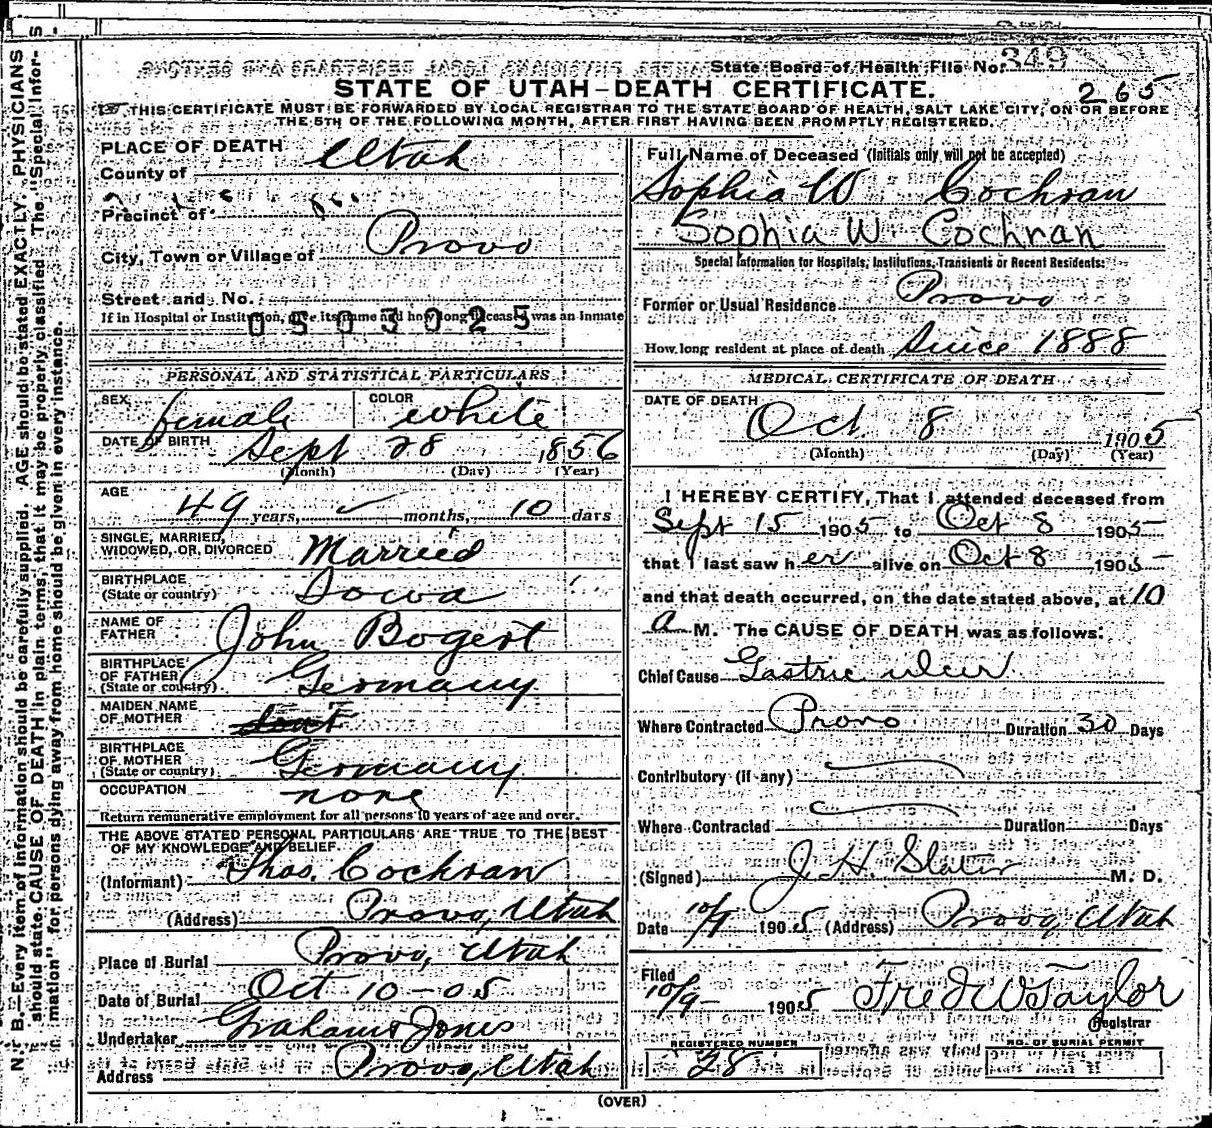 State Board of Health File No. 349
STATE OF UTAH—DEATH CERTIFICATE.
265
THIS CERTIFICATE MUST BE FORWARDED BY LOCAL REGISTRAR TO THE STATE BOARD OF HEALTH, SALT LAKE CITY, ON OR BEFORE
THE 5TH OF THE FOLLOWING MONTH, AFTER FIRST HAVING BEEN PROMPTLY REGISTERED.
PLACE OF DEATH
County of Utah
Precinct of
City, Town or Village of Provo
Street and No.
If in Hospital or Institution, give its name and how long deceased was an inmate
0503025
PERSONAL AND STATISTICAL PARTICULARS
SEX female COLOR white
DATE OF BIRTH Sept 28 1856
(Month) (Day) (Year)
AGE 49 years, months, 10 days
SINGLE, MARRIED,
WIDOWED, OR DIVORCED Married
BIRTHPLACE
(State or country) Iowa
NAME OF
FATHER John Bogert
BIRTHPLACE
OF FATHER
(State or country) Germany
MAIDEN NAME
OF MOTHER
BIRTHPLACE
OF MOTHER
(State or country) Germany
OCCUPATION none
Return remunerative employment for all persons 10 years of age and over.
THE ABOVE STATED PERSONAL PARTICULARS ARE TRUE TO THE BEST
OF MY KNOWLEDGE AND BELIEF.
(Informant) Thos. Cochran
(Address) Provo, Utah
Place of Burial Provo, Utah
Date of Burial Oct 10-05
Undertaker Graham & Jones
Address Provo, Utah
Full Name of Deceased (Initials only will not be accepted)
Sophia W Cochran
Sophia W. Cochran
Special Information for Hospitals, Institutions, Transients or Recent Residents:
Former or Usual Residence Provo
How long resident at place of death Since 1888
MEDICAL CERTIFICATE OF DEATH
DATE OF DEATH
Oct 8 1905
(Month) (Day) (Year)
I HEREBY CERTIFY, That I attended deceased from
Sept 15 1905 to Oct 8 1905
that I last saw her alive on Oct 8 1905
and that death occurred, on the date stated above, at 10
A M. The CAUSE OF DEATH was as follows:
Chief Cause Gastric ulcer
Where Contracted Provo Duration 30 Days
Contributory (if any)
Where Contracted Duration Days
(Signed) J. H. Slater M. D.
Date 10/9 1905 (Address) Provo, Utah
Filed
10/9- 1905 Fred W Taylor
Registrar
REGISTERED NUMBER NO. OF BURIAL PERMIT
28
(OVER)
N. B.—Every item of information should be carefully supplied. AGE should be stated EXACTLY. PHYSICIANS
should state CAUSE OF DEATH in plain terms, that it may be properly classified. The "Special Infor-
mation" for persons dying away from home should be given in every instance.